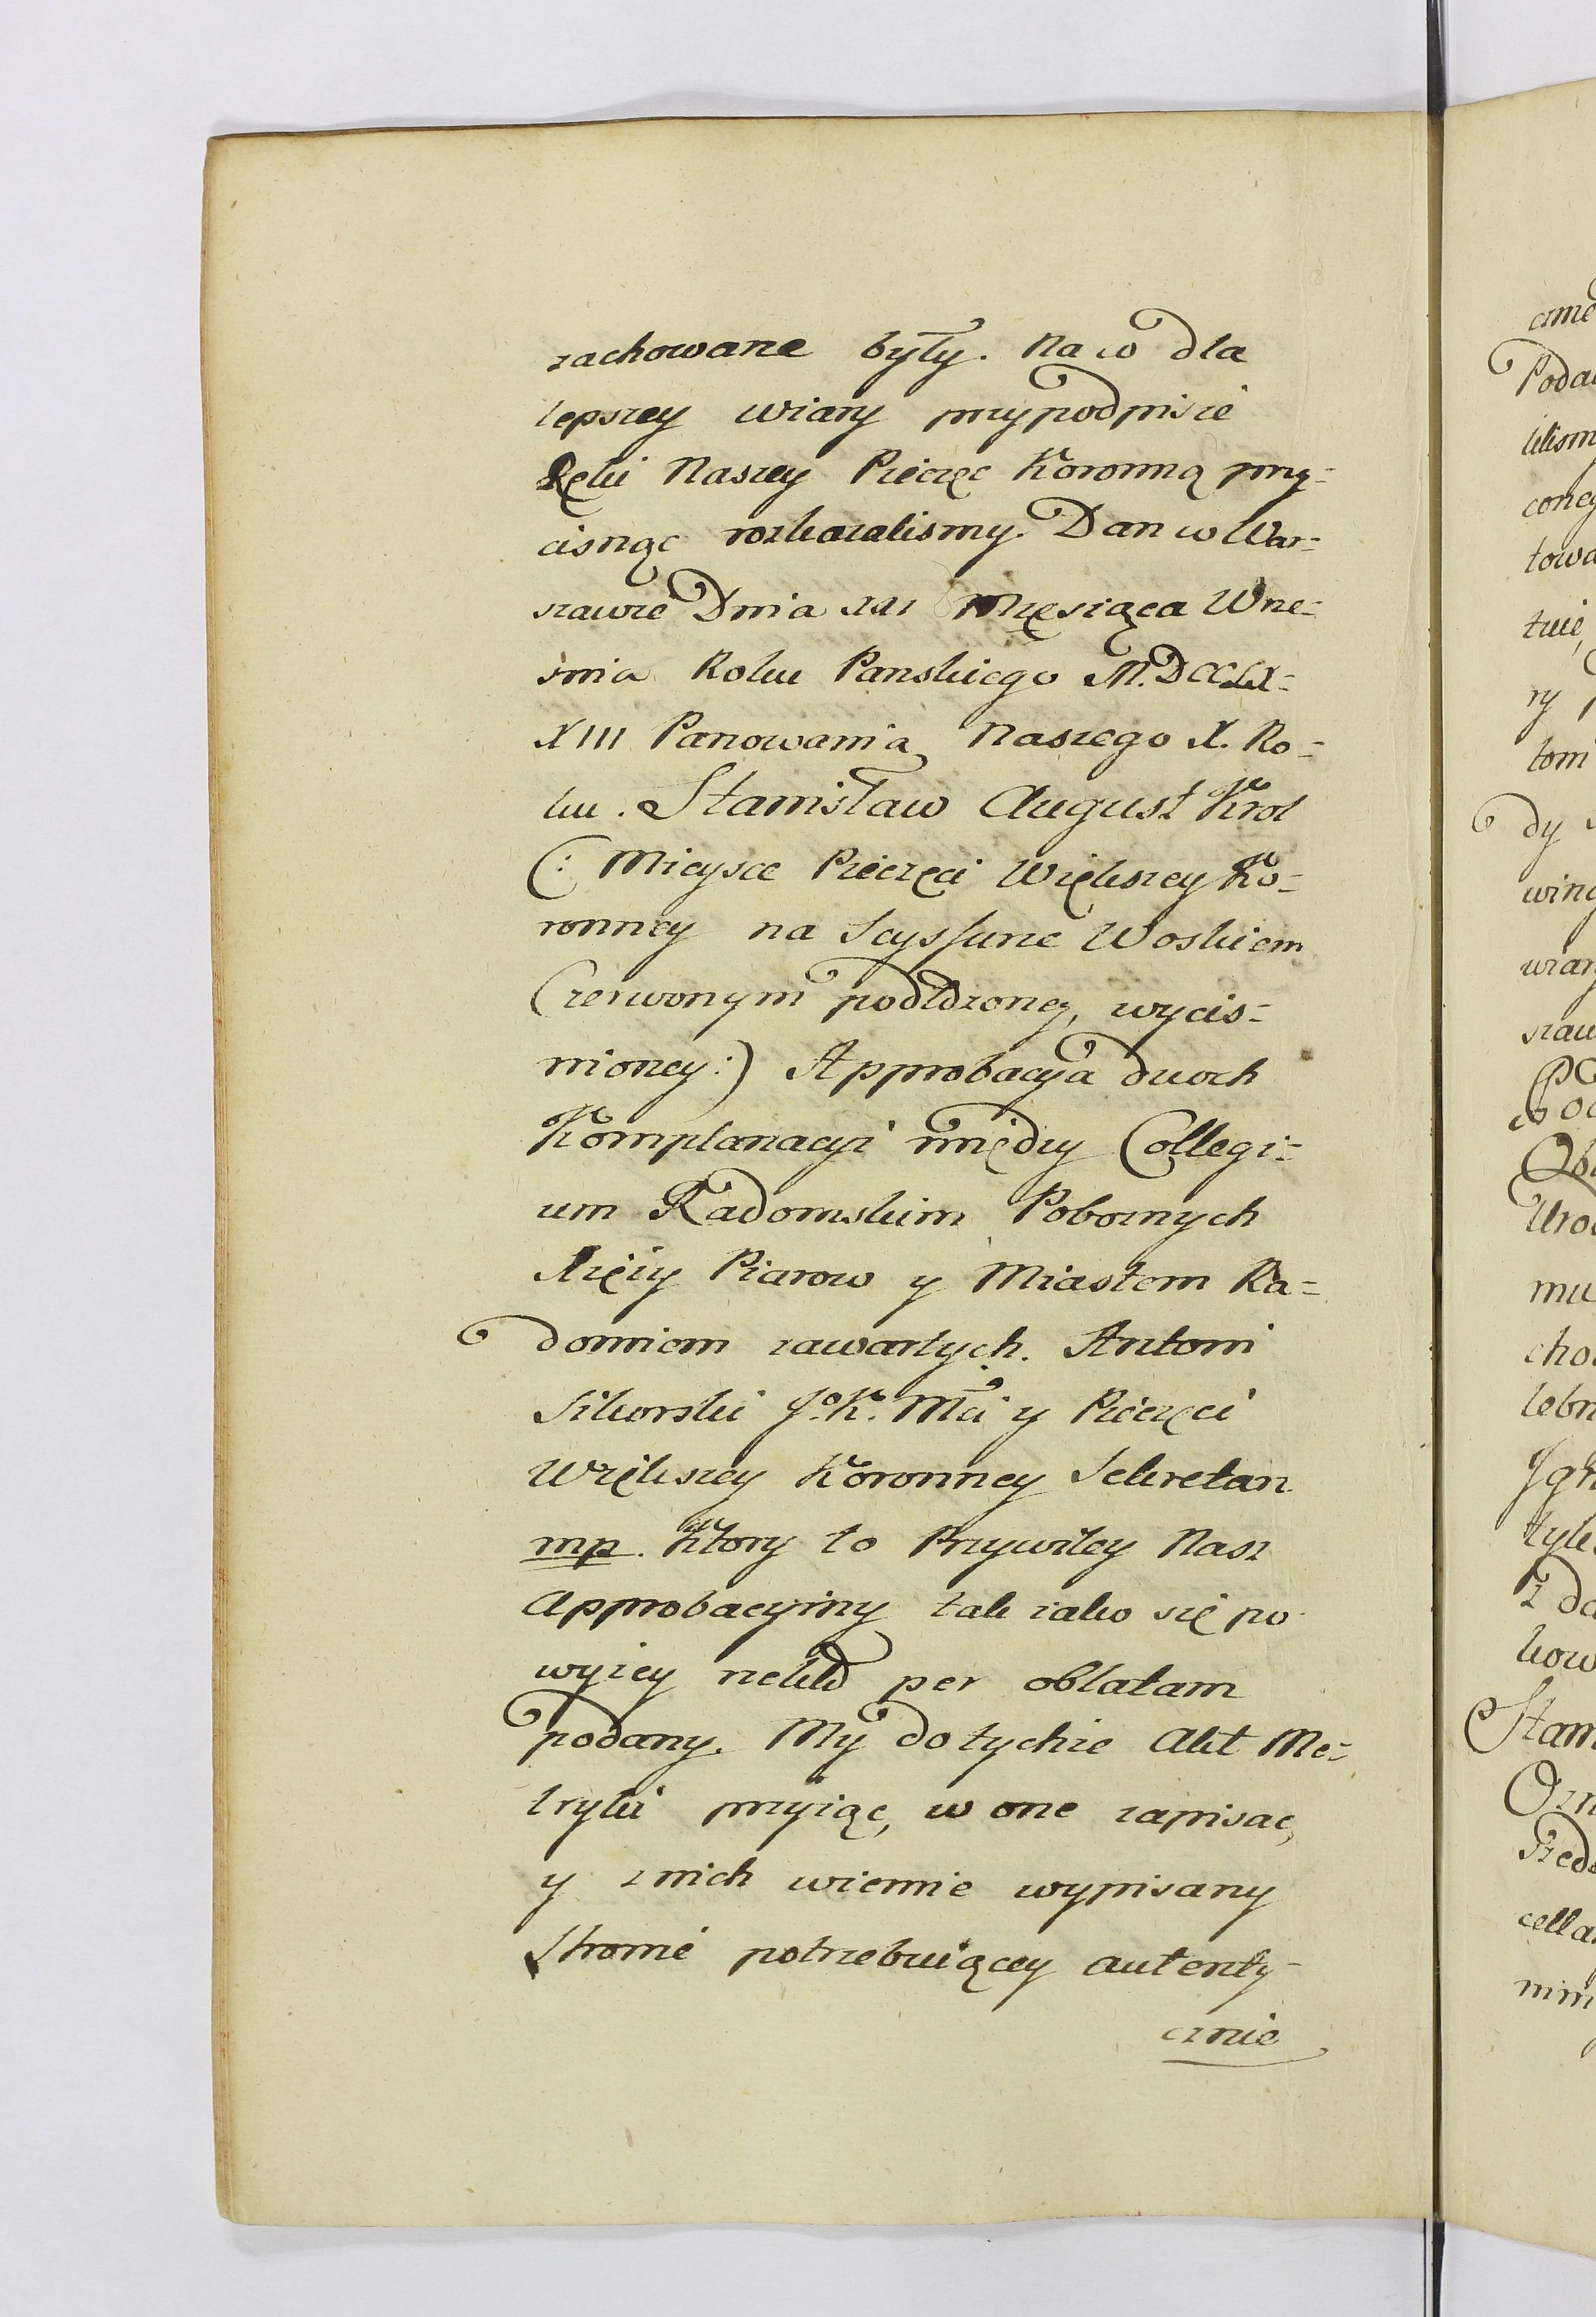 zachowane były. Na co dla
lepszey wiary przy podpisie
Ręki Naszey Pieczęc Koronną przy-
cisnąc rozkazalismy. Dan w War-
szawie Dnia XVI Miesiąca Wrze-
snia Roku Panskiego M.DCCLX-
XIII Panowania Naszego X. Ro-
ku. Stanisław August Krol
(: Mieysce Pieczęci Większey Ko-
ronney na Scyssurze Woskiem
Czerwonym podłożoney, wycis-
nioney:) Approbacya dwoch
Komplanacyi między Collegi-
um Radomskim Pobornych
Xięży Piarow y Miastem Ra-
domiem zawartych. Antoni
Sikorski J. K. Mci y Pieczęci
Większey Koronney Sekretarz
mp. Ktory to Przywiley Nasz
Approbacyiny tak iako się po
wyżey rzekło per oblatam
podany. My do tychże Akt Me-
tryki przyiąc, w one zapisac,
y z nich wiernie wypisany
Stronie potrzebuiącey autenty-
cznie